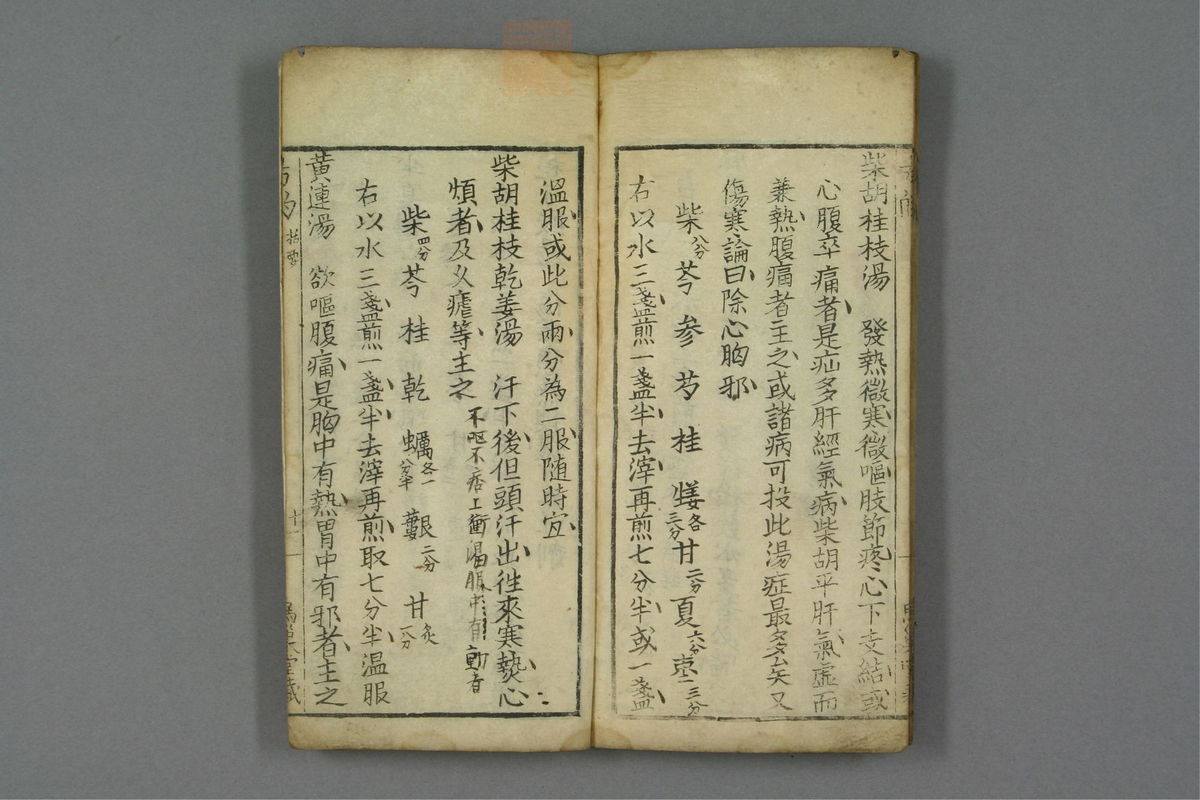 柴胡桂枝湯　發熱微寒微嘔肢節疼心下支結或
心腹卒痛者是疝多肝經氣病柴胡平肝氣虛而
兼熱腹痛者主之或諸病可投此湯症最多矣又
傷寒論曰除心胸邪
柴八分 芩 參 芍 桂 姜各三分 甘二分 夏六分 棗三分
右以水三盞煎一盞半去滓再煎七分半或一盞
溫服或此分兩分為二服随時宜
柴胡桂枝乾姜湯　汗下後但頭汗出徃來寒熱心
煩者及久瘧等主之 不呕不痞上衝渴腹中有動者
柴四分 芩 桂 乾 蠣各一分半 蔞二分 甘炙一分
右以水三盞煎一盞半去滓再煎取七分半温服
黄連湯　欲嘔腹痛是胸中有熱胃中有邪者主之
十一